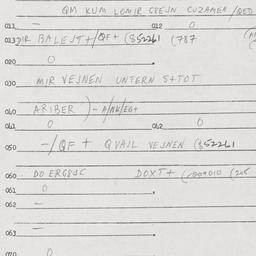 QM KUM LOMIR CREJN CUZAMEN /QED
011 — 012 0
013 DIR BALEJT+/QF+ (852261 (787
020 0
030 MIR VEJNEN UNTERN S+TOT
040 ARIBER )-A/NK/EG+
041 0 042 0
050 -/QF + QVAJL VEJNEN (852261
060 DOERG8JC DOXT+ (2009010 (205
061 0
062 —
063 —
070 0